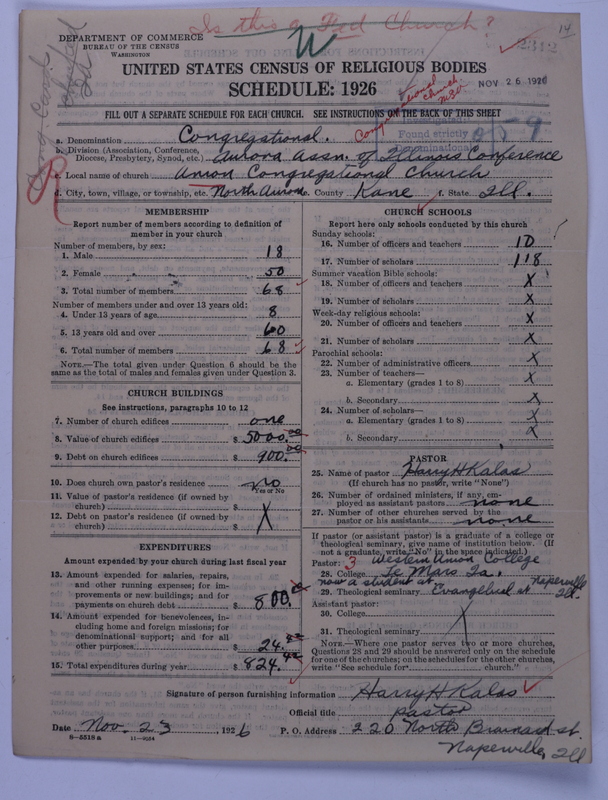 Is this a Fed Church?
14
DEPARTMENT OF COMMERCE
BUREAU OF THE CENSUS
WASHINGTON
W
2312
UNITED STATES CENSUS OF RELIGIOUS BODIES
SCHEDULE: 1926
NOV 26 1926
Congregational
church
FILL OUT A SEPARATE SCHEDULE FOR EACH CHURCH. SEE INSTRUCTIONS ON THE BACK OF THIS SHEET
a. Denomination Congregational.
b. Division (Association, Conference, Diocese, Presbytery, Synod, etc.) Aurora Assn. of Illinois Conference
c. Local name of church Union Congregational Church
d. City, town, village, or township, etc. North Aurora. County Kane f. State Ill.
MEMBERSHIP
Report number of members according to definition of member in your church
Number of members, by sex:
1. Male 18
2. Female 50
3. Total number of members 68
Number of members under and over 13 years old:
4. Under 13 years of age 8
5. 13 years old and over 60
6. Total number of members 68
NOTE.—The total given under Question 6 should be the same as the total of males and females given under Question 3.
CHURCH BUILDINGS
See instructions, paragraphs 10 to 12
7. Number of church edifices one
8. Value of church edifices $ 5000.00
9. Debt on church edifices $ 900.00
10. Does church own pastor's residence no
Yes or No
11. Value of pastor's residence (if owned by church) $
12. Debt on pastor's residence (if owned by church) $ X
EXPENDITURES
Amount expended by your church during last fiscal year
13. Amount expended for salaries, repairs, and other running expenses; for improvements or new buildings; and for payments on church debt $ 800.
14. Amount expended for benevolences, including home and foreign missions; for denominational support; and for all other purposes $ 24.
15. Total expenditures during year $ 824.
CHURCH SCHOOLS
Report here only schools conducted by this church
Sunday schools:
16. Number of officers and teachers 10
17. Number of scholars 118
Summer vacation Bible schools:
18. Number of officers and teachers X
19. Number of scholars X
Week-day religious schools:
20. Number of officers and teachers X
21. Number of scholars X
Parochial schools:
22. Number of administrative officers X
23. Number of teachers—
a. Elementary (grades 1 to 8) X
b. Secondary X
24. Number of scholars—
a. Elementary (grades 1 to 8) X
b. Secondary X
PASTOR
25. Name of pastor Harry H Kalas
(If church has no pastor, write "None")
26. Number of ordained ministers, if any, employed as assistant pastors none
27. Number of other churches served by the pastor or his assistants none
If pastor (or assistant pastor) is a graduate of a college or theological seminary, give name of institution below. (If not a graduate, write "No" in the space indicated.)
Pastor: 3 Western Union College
28. College Le Mars Ia.
now a student at
29. Theological seminary Evangelical at Naperville Ill.
Assistant pastor:
30. College
31. Theological seminary X
NOTE.—Where one pastor serves two or more churches, Questions 28 and 29 should be answered only on the schedule for one of the churches; on the schedules for the other churches, write "See schedule for church."
Signature of person furnishing information Harry H Kalas
Official title pastor
Date Nov. 23, 1926 P. O. Address 220 North Brainard st.
Naperville, Ill
8-5518 a 11-9134